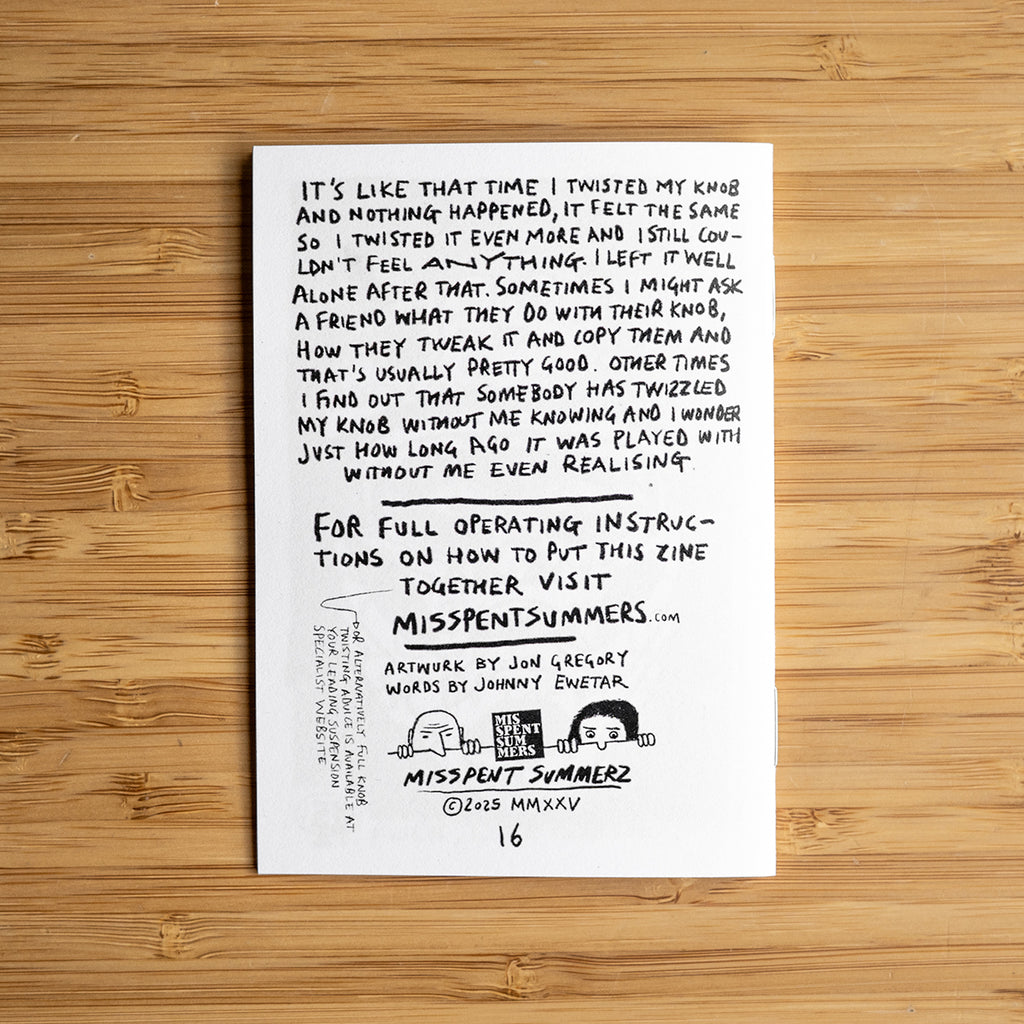 IT'S LIKE THAT TIME I TWISTED MY KNOB
AND NOTHING HAPPENED, IT FELT THE SAME
SO I TWISTED IT EVEN MORE AND I STILL COU-
LDN'T FEEL ANYTHING. I LEFT IT WELL
ALONE AFTER THAT. SOMETIMES I MIGHT ASK
A FRIEND WHAT THEY DO WITH THEIR KNOB,
HOW THEY TWEAK IT AND COPY THEM AND
THAT'S USUALLY PRETTY GOOD. OTHER TIMES
I FIND OUT THAT SOMEBODY HAS TWIZZLED
MY KNOB WITHOUT ME KNOWING AND I WONDER
JUST HOW LONG AGO IT WAS PLAYED WITH
WITHOUT ME EVEN REALISING.
FOR FULL OPERATING INSTRUC-
TIONS ON HOW TO PUT THIS ZINE
TOGETHER VISIT
MISSPENTSUMMERS.COM
OR ALTERNATIVELY FULL KNOB
TWISTING ADVICE IS AVAILABLE AT
YOUR LEADING SUSPENSION
SPECIALIST WEBSITE
ARTWURK BY JON GREGORY
WORDS BY JOHNNY EWETAR
MIS
SPENT
SUM
MERS
MISSPENT SUMMERZ
©2025 MMXXV
16